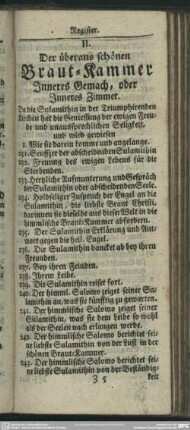 Register.
II.
Der überaus schönen
Braut-Kammer
Inneres Gemach, oder
Inneres Zimmer.
Da die Sulamithin in der Triumphirenden
Kirchen hat die Geniessung der ewigen Freu-
de und unaussprechlichen Seligkeit,
und wird gewiesen
1. Wie sie darein komme und angelange.
Seuffzer der abscheidenden Sulamithin
Freuung des ewigen Lebens für die
Sterbenden.
133. Hertzliche Aufmunterung und Gespräch
der Sulamithin oder abscheidenden Seele.
134. Holdseliger Zuspruch der Engel an die
Sulamithin, die liebste Braut Christi,
darinnen sie dieselbe aus dieser Welt in die
himmlische Braut-Kammer abfordern.
Der Sulamithin Erklärung und Ant-
wort gegen die heil. Engel.
136. Die Sulamithin dancket ab bey ihren
Freunden.
137. Bey ihren Feinden.
138. Ihrem Leibe.
139. Die Sulamithin reiset fort.
140. Der himml. Salomo zeiget seiner Su-
lamithin an, was sie künfftig zu gewarten.
141. Der himmlische Salomo zeiget seiner
Sulamithin, was sie dem Leibe so wohl
als der Seelen nach erlangen werde.
142. Der himmlische Salomo berichtet sei-
ne liebste Sulamithin von der Lust in der
schönen Braut-Kammer.
143. Der himmlische Salomo berichtet sei-
ne liebste Sulamithin von der Beständig-
3 5 keit